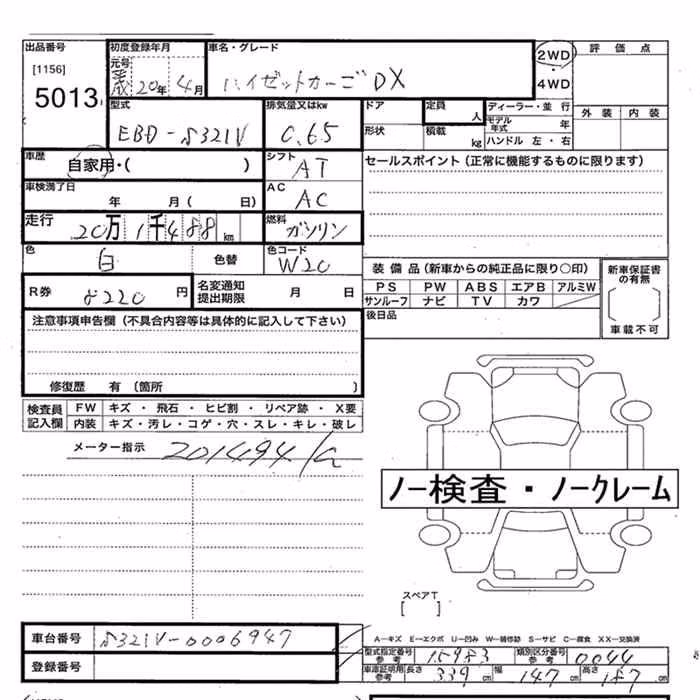 出品番号 初度登録年月 車名・グレード 2WD・4WD 評価点
[1156] 元号 20年 4月 ハイゼットカーゴDX
5013
型式 排気量又はkw ドア 定員 人 ディーラー・並行 外装 内装
EBD-S321V 0.65 形状 積載 kg モデル年式 年
ハンドル 左・右
車歴 自家用・( ) シフト AT セールスポイント(正常に機能するものに限ります)
車検満了日 年 月( 日) AC AC
走行 20万1千488km 燃料 ガソリン
色 白 色替 色コード W20
装備品(新車からの純正品に限り○印) 新車保証書の有無
R券 8220円 名変通知提出期限 月 日 PS PW ABS エアB アルミW
サンルーフ ナビ TV カワ
後日品 車載不可
注意事項申告欄(不具合内容等は具体的に記入して下さい)
修復歴 有 (箇所 )
検査員記入欄 FW キズ・飛石・ヒビ割・リペア跡・X要
内装 キズ・汚レ・コゲ・穴・スレ・キレ・破レ
メーター指示 201494
ノー検査・ノークレーム
スペアT
[ ]
車台番号 S321V-0006947 A-キズ E-エクボ U-凹み W-補修跡 S-サビ C-腐食 XX-交換済
登録番号 型式指定番号 参考 15983 類別区分番号 参考 0044
車庫証明用参考 長さ 339cm 幅 147cm 高さ 187cm